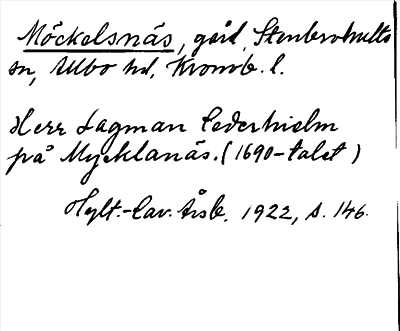 Möckelsnäs, gård, Stenbrohults
sn, Allbo hd, Kronob. l.
Herr Lagman Cederhielm
på Mycklanäs. (1690-talet)
Hylt.-Cav. årsb. 1922, s. 146.